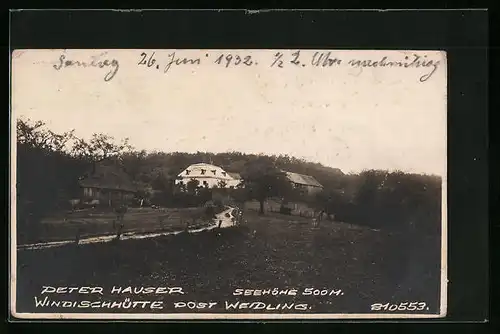 Sonntag 26 Juni 1932 ½ 2. Uhr nachmittag
PETER HAUSER SEEHÖHE 500M.
WINDISCHHÜTTE POST WEIDLING. 810553.